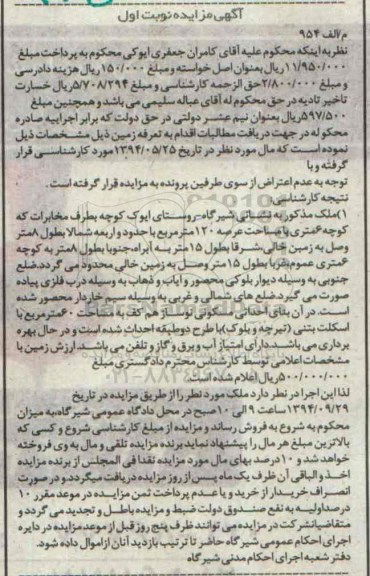 آگهی مزایده نوبت اول
م/الف ۹۵۴
نظر به اینکه محکوم علیه آقای کامران جعفری ایوکی محکوم به پرداخت مبلغ
۱۱/۹۵۰/۰۰۰ ریال بعنوان اصل خواسته و مبلغ ۱۵۰/۰۰۰ ریال هزینه دادرسی
و مبلغ ۲/۸۰۰/۰۰۰ حق الزحمه کارشناسی و مبلغ ۵/۷۰۸/۲۹۴ ریال خسارت
تاخیر تادیه در حق محکوم له آقای عباله سلیمی می باشد و همچنین مبلغ
۵۹۷/۵۰۰ ریال بعنوان نیم عشر دولتی در حق دولت که برابر اجراییه صادره
محکوم له در جهت دریافت مطالبات اقدام به تعرفه زمین ذیل مشخصات ذیل
نموده است که مال مورد نظر در تاریخ ۱۳۹۴/۰۵/۲۵ مورد کارشناسی قرار
گرفته و با
توجه به عدم اعتراض از سوی طرفین پرونده به مزایده قرار گرفته است.
نتیجه کارشناسی:
۱)ملک مذکور به نشانی شیرگاه-روستای ایوک کوچه بطرف مخابرات که
کوچه ۶متری با مساحت عرصه ۱۲۰مترمربع با حدود و اربعه شمالا بطول ۸متر
وصل به زمین خالی،شرقا بطول ۱۵متر به آبراه،جنوبا بطول ۸متر به کوچه
۶متری عموم،غربا بطول ۱۵متر وصل به زمین خالی محدود می گردد.ضلع
جنوبی به وسیله دیوار بلوکی محصور و ایاب و ذهاب به وسیله درب فلزی پیاده
صورت می گیرد،ضلع های شمالی و غربی به وسیله سیم خاردار محصور شده
است. در آن بنای احداثی مسکونی نوساز هم کف به مساحت ۶۰مترمربع با
اسکلت بتنی (تیرچه و بلوک)با طرح دوطبقه احداث شده است و در حال بهره
برداری می باشد.دارای امتیاز آب و برق و گاز و تلفن می باشد.ارزش زمین با
مشخصات اعلامی توسط کارشناس محترم دادگستری مبلغ
۵۰۰/۰۰۰/۰۰۰ریال اعلام شده است.
لذا این اجرا در نظر دارد ملک مورد نظر را از طریق مزایده در تاریخ
۱۳۹۴/۰۹/۲۹ساعت ۹ الی ۱۰صبح در محل دادگاه عمومی شیرگاه،به میزان
محکوم به شروع به فروش رساند و مزایده از مبلغ کارشناسی شروع و کسی که
بالاترین مبلغ هر مال را پیشنهاد نماید برنده مزایده تلقی و مال به وی فروخته
خواهد شد و ۱۰درصد بهای مال مورد مزایده نقدا فی المجلس از برنده مزایده
اخذ و الباقی آن ظرف یک ماه پس از روز مزایده دریافت میگردد.و در صورت
انصراف خریدار از خرید و یا عدم پرداخت ثمن مزایده در موعد مقرر ۱۰
درصد اولیه به نفع صندوق دولت ضبط و مزایده باطل و تجدید می گردد و
متقاضیان شرکت در مزایده می توانند ظرف پنج روز قبل از موعد مزایده در دایره
اجرای احکام عمومی شیرگاه حاضر تا ترتیب بازدید آنان از اموال داده شود.
دفتر شعبه اجرای احکام مدنی شیرگاه